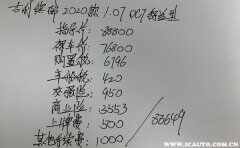 吉利缤瑞 2020款 1.0T DCT 舒适型
指导价: 88800
裸车价: 76800
购置税: 6796
车船税: 420
交强险: 950
商业险: 3553
上牌费: 500
1000
/88649
www.jcauto.com.cn